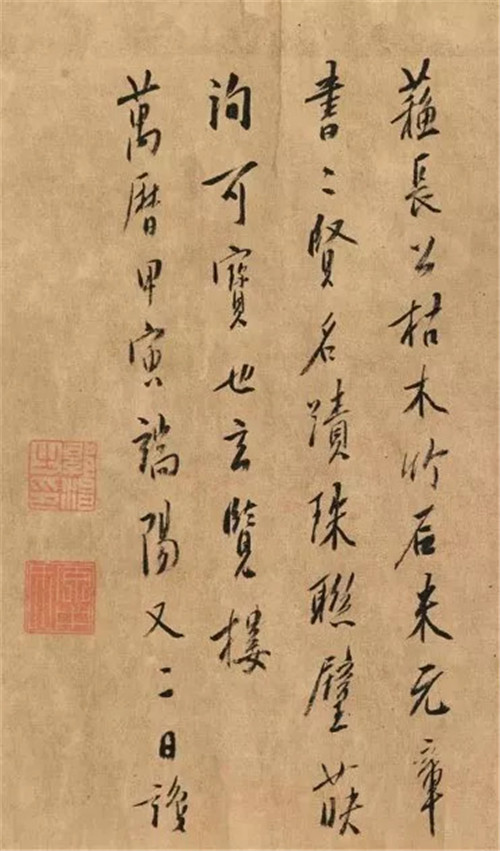 蘓長公枯木竹石米元章
書二賢名蹟珠聯璧映
詢可寶也玄覽樓
萬曆甲寅端陽又二日